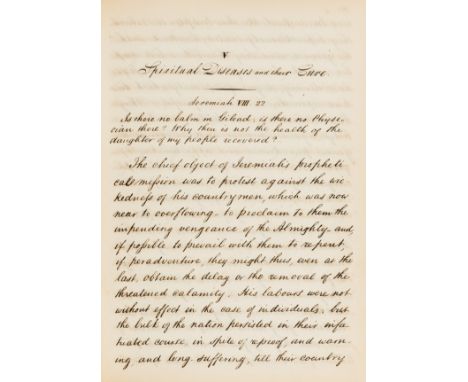 V
Spiritual Diseases and their Cure.
Jeremiah VIII 22
Is there no balm in Gilead; is there no Physi-
cian there? Why then is not the health of the
daughter of my people recovered?
The chief object of Jeremiah's propheti
cal mission was to protest against the wic
kedness of his countrymen, which was now
near to overflowing - to proclaim to them the
impending vengeance of the Almighty - and,
if possible to prevail with them to repent,
if peradventure, they might thus, even at the
last, obtain the delay or the removal of the
threatened calamity. His labours were not
without effect in the case of individuals; but
the bulk of the nation persisted in their infa
tuated course, in spite of reproof, and warn-
ing, and long-suffering, till their country